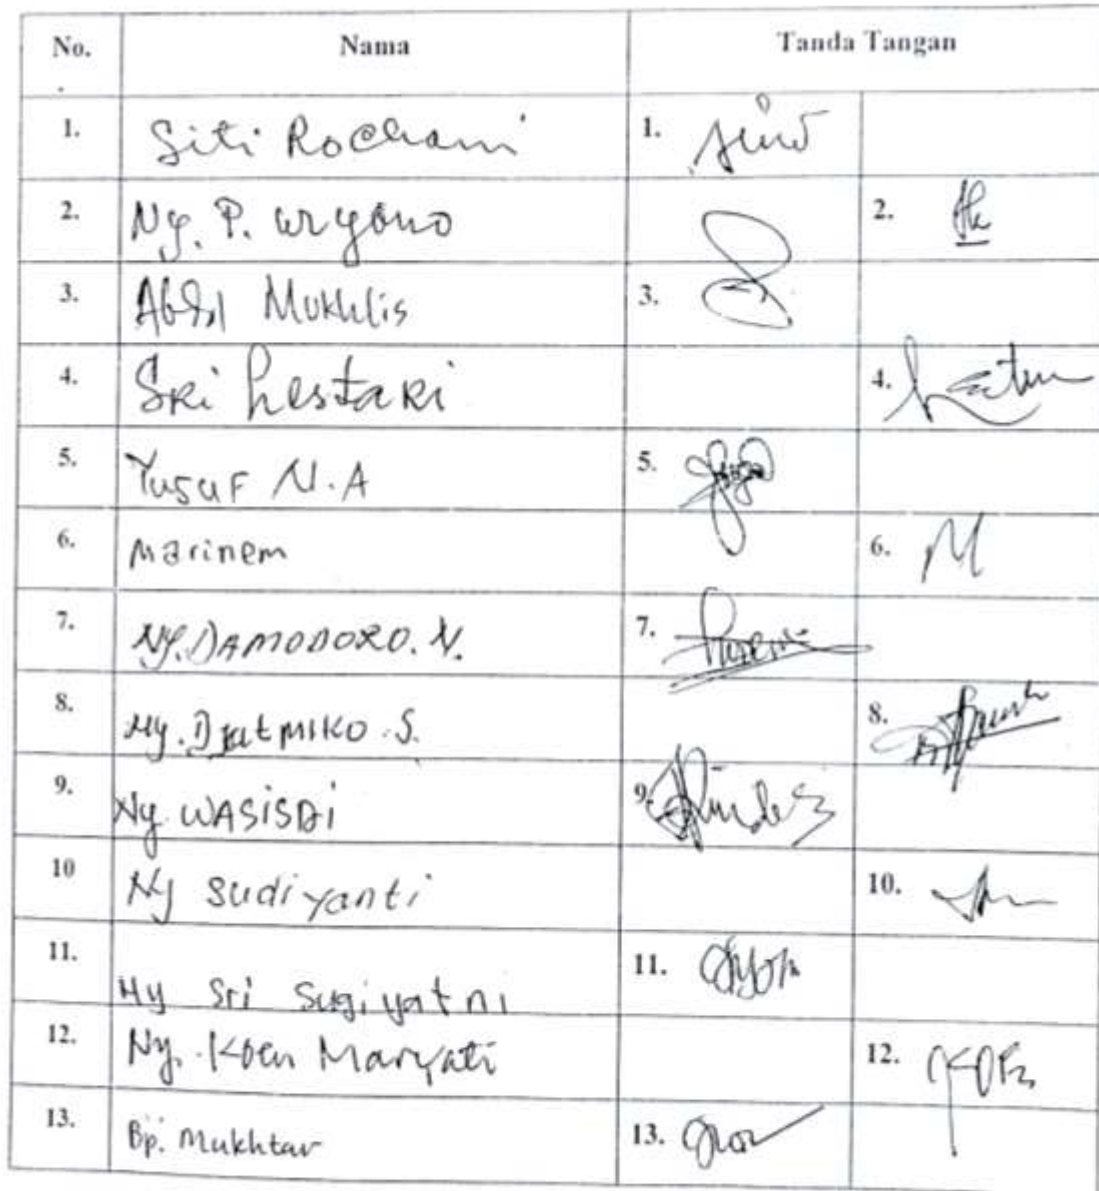 No. Nama Tanda Tangan
1. Siti Rochani 1.
2. Ny. P. Wryono 2.
3. Abdul Mukhlis 3.
4. SRi LestaRi 4.
5. Yusuf N.A 5.
6. Marinem 6. M
7. NY. DAMODORO. N. 7.
8. Ny. Djatmiko .S. 8.
9. Ny WASISDi 9.
10 Ny Sudiyanti 10.
11. Ny Sri Sugiyatni 11.
12. Ny. Koen Maryati 12.
13. Bp. Mukhtar 13.